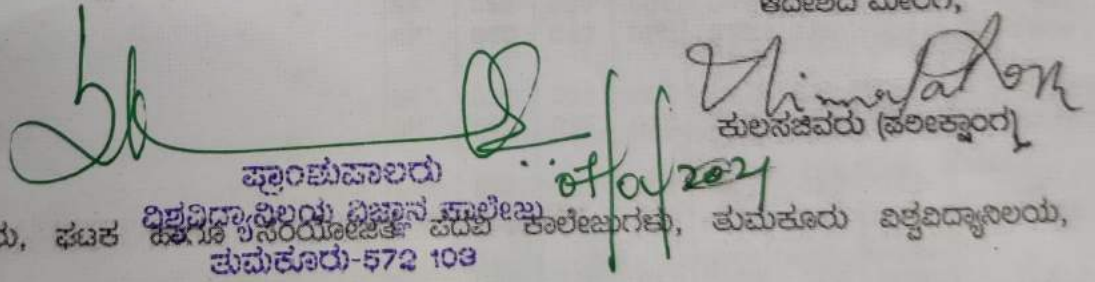 ಆದೇಶದ ಮೇರೆಗೆ,
ಕುಲಸಚಿವರು (ಪರೀಕ್ಷಾಂಗ)
ಪ್ರಾಂಶುಪಾಲರು
ವಿಶ್ವವಿದ್ಯಾನಿಲಯ ವಿಜ್ಞಾನ ಕಾಲೇಜು
ಘಟಕ ಹಾಗೂ ಸಂಯೋಜಿತ ಪದವಿ ಕಾಲೇಜುಗಳು, ತುಮಕೂರು ವಿಶ್ವವಿದ್ಯಾನಿಲಯ,
ತುಮಕೂರು-572 103